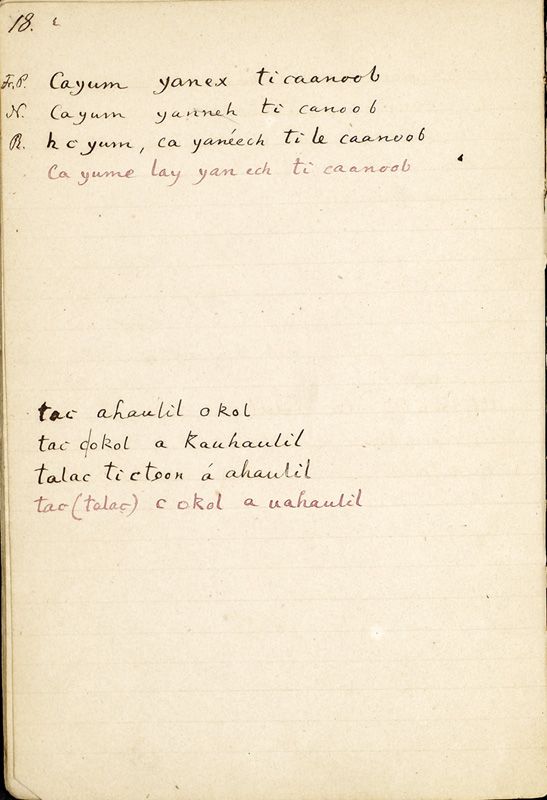 18.
Fr. P. Cayum yanex ti caanoob
N. Cayum yanneh ti canoob
R. h c yum, ca yanéech ti le caanoob
Ca yume lay yan ech ti caanoob
tac ahaulil okol
tac cokol a Kauhaulil
talac ti ctoon á ahaulil
tac (talac) c okol a uahaulil